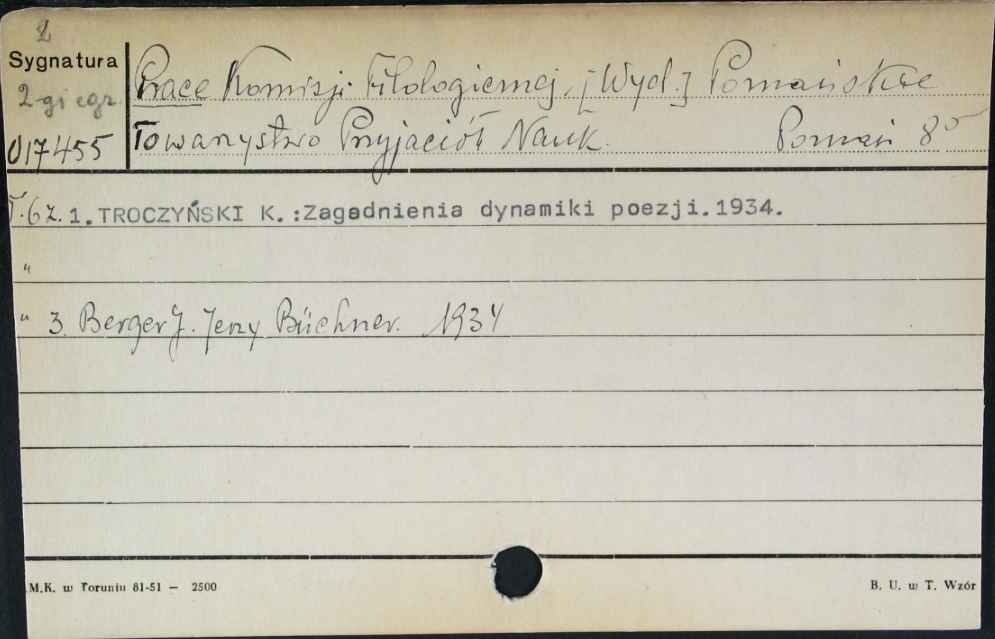 2
Sygnatura
2-gi egz.
017455
Prace Komisji Filologicznej. [Wyd.] Poznańskie
Towarzystwo Przyjaciół Nauk. Poznań 8°
T. 6 z. 1. TROCZYŃSKI K.:Zagadnienia dynamiki poezji.1934.
"
" 3 Berger J. Jerzy Büchner. 1934
M.K. w Toruniu 81-51 — 2500
B. U. w T. Wzór